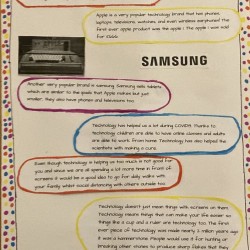 Apple is a very popular technology brand that has phones,
laptops, televisions, watches, and even wireless earphones! The
first ever apple product was the apple 1. The apple 1 was sold
for
SAMSUNG
Another very popular brand is samsung. Samsung sells tablets
which are similar to the ipads that Apple makes but just
smaller, they also have phones and televisions too.
Technology has helped us a lot during COVID19. Thanks to
technology children are able to have online classes and adults
are able to work from home. Technology has also helped the
scientists with making a cure.
Even though technology is helping us too much is not good for
you and since we are all spending a lot more time in front of
screens it would be a good idea to go for daily walks with
your family whilst social distancing with others outside too.
Technology doesn't just mean things with screens on them.
Technology means things that can make your life easier so
things like a cup and a ruler are technology too. The first ever
piece of technology was made nearly 3 million years ago
it was a hammerstone. People would use it for hunting or
breaking other stones to produce sharp flakes that they